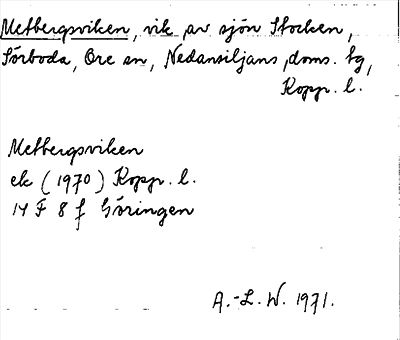 Metbergsviken, vik av sjön Stocken,
Sörboda, Ore sn, Nedansiljans doms. tg,
Kopp. l.
Metbergsviken
ek (1970) Kopp. l.
14 F 8 f Göringen
A.-L. W. 1971.